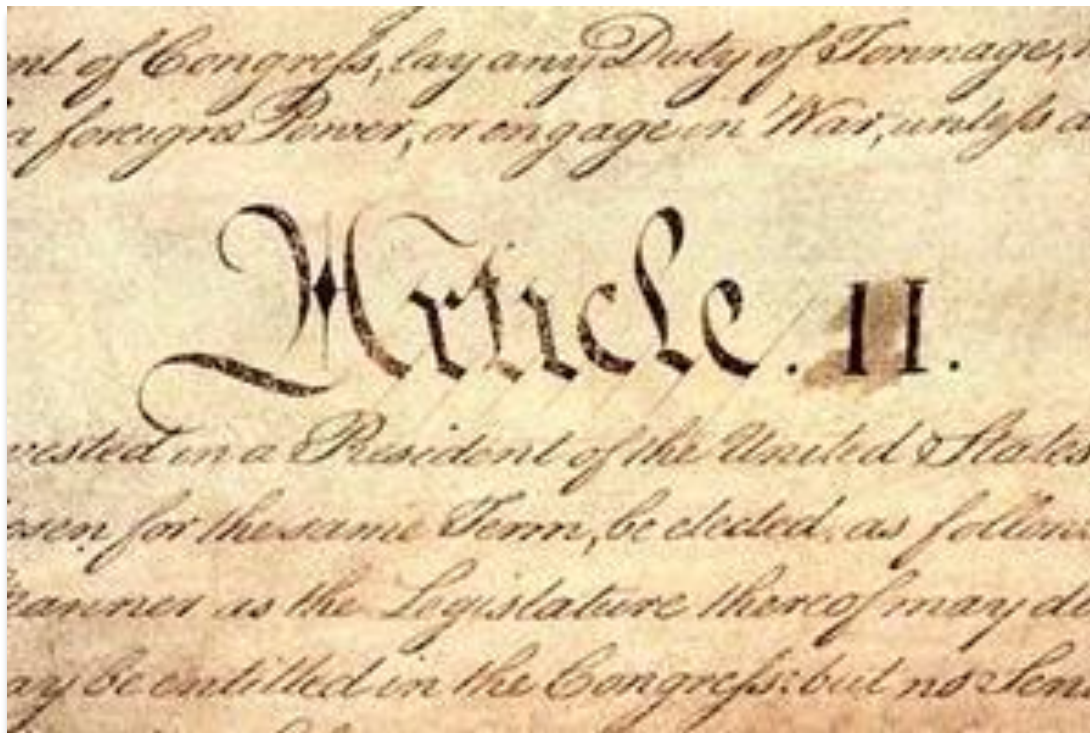 nt of Congress, lay any Duty of Tonnage,
a foreign Power, or engage in War, unless a
Article. II.
vested in a President of the United States
osen for the same Term, be elected, as follow
anner as the Legislature thereof may di
ay be entitled in the Congress: but no Sena